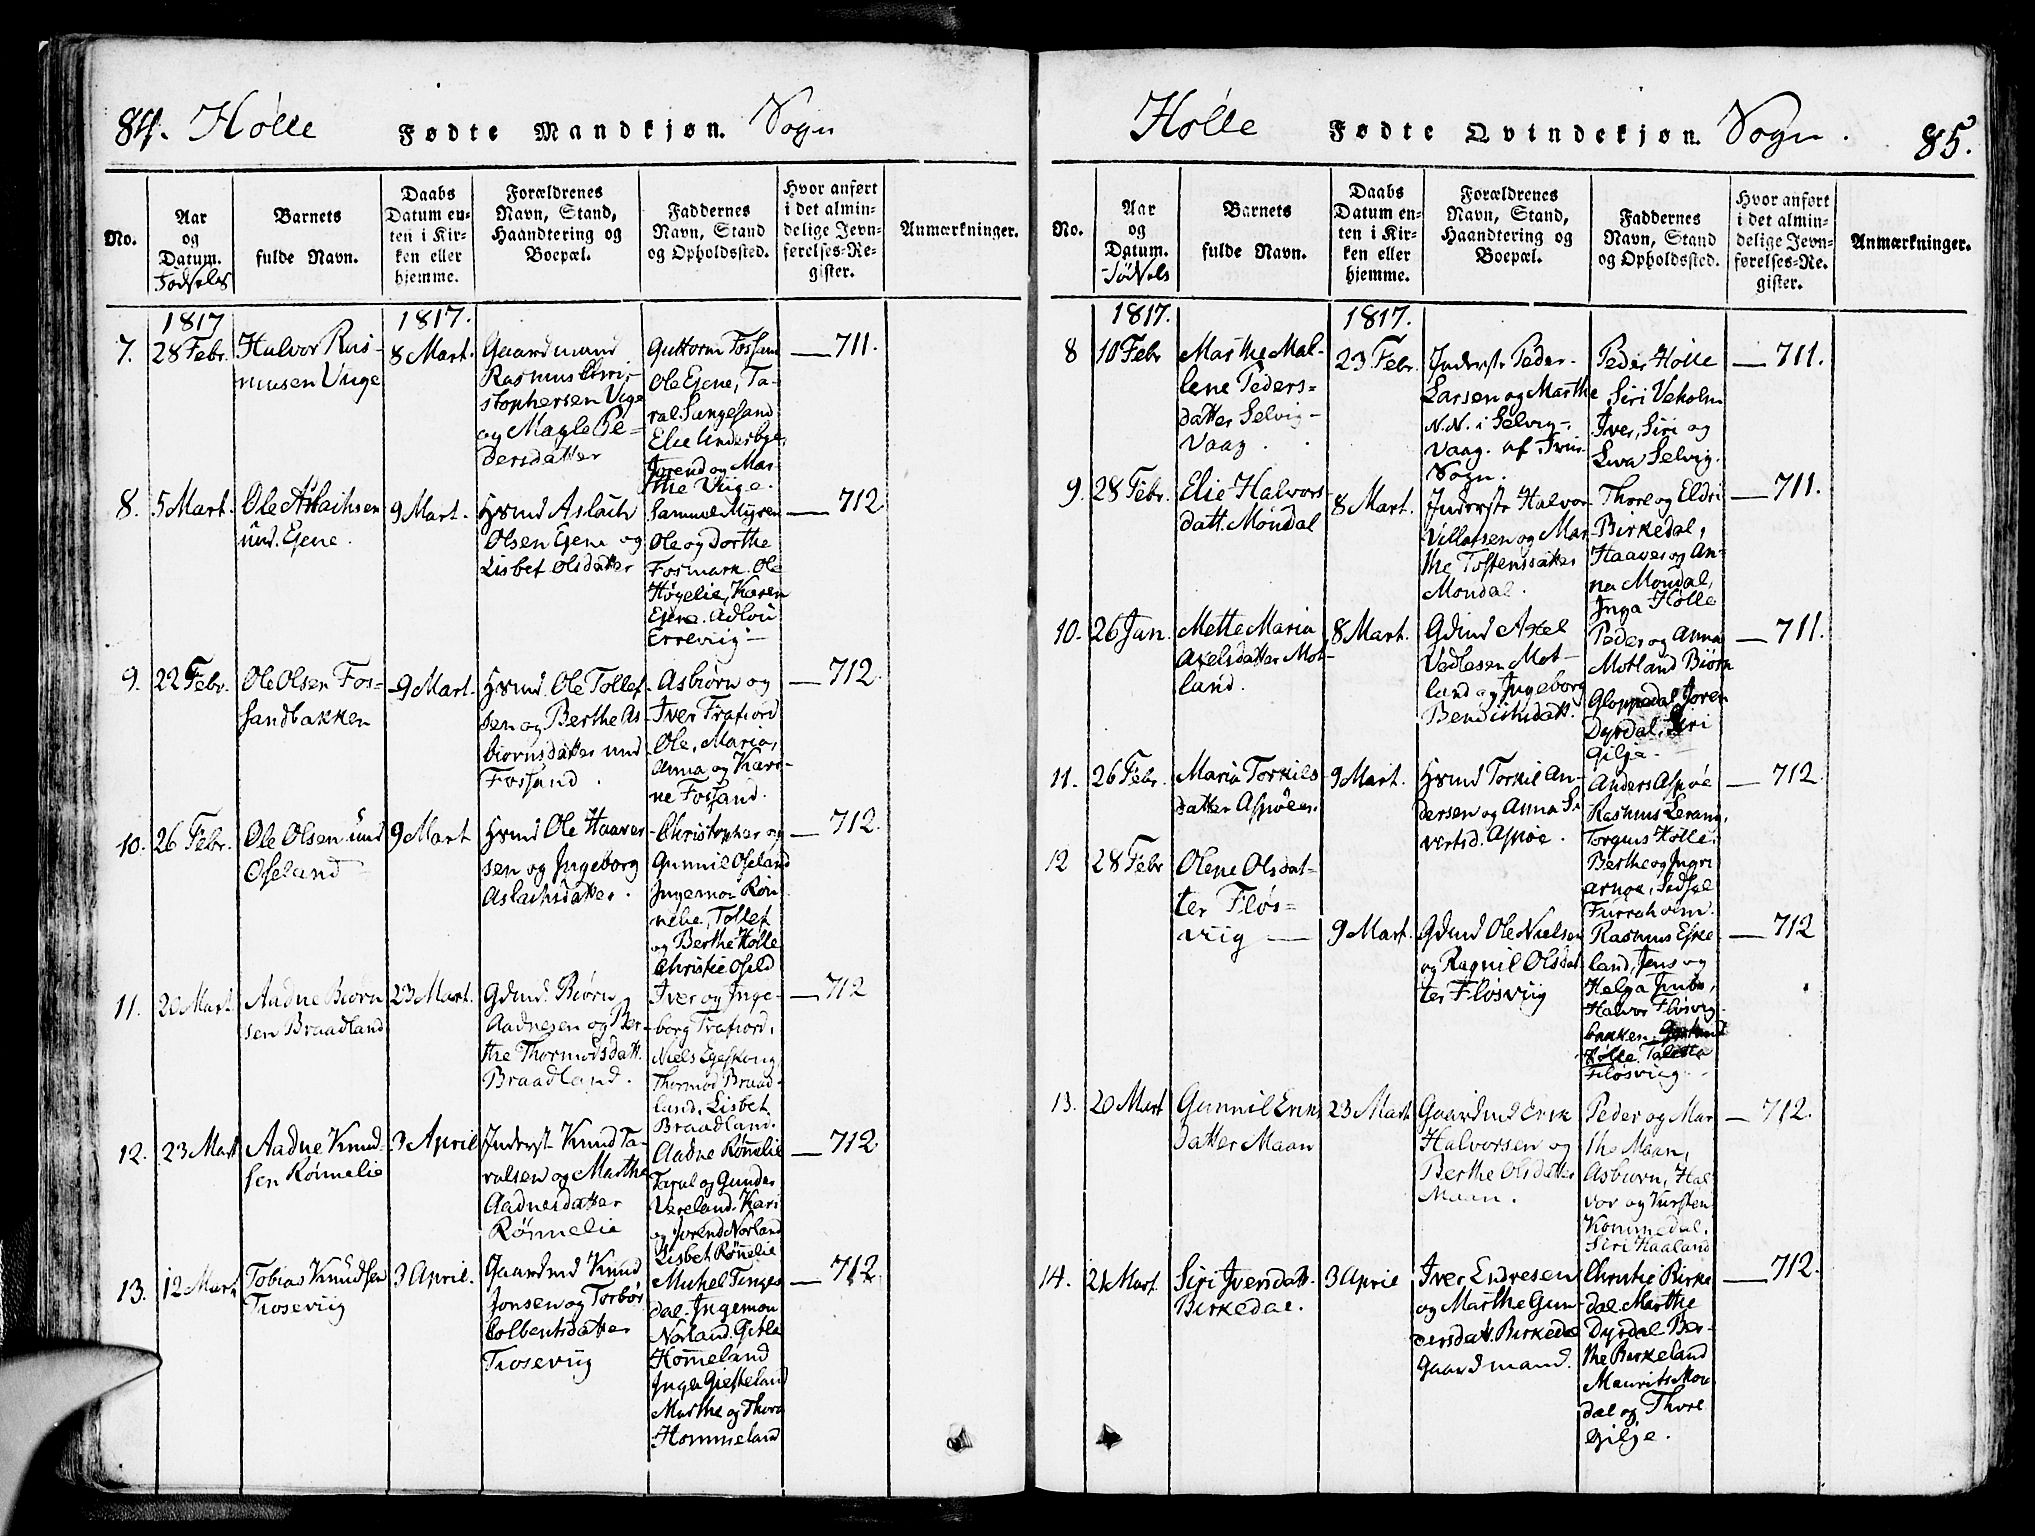 84. Hølle Fødte Mandkjøn. Sogn
No.
Aar
og
Datum.
Fødsels
Barnets
fulde Navn.
Daabs
Datum en-
ten i Kir-
ken eller
hjemme.
Forældrenes
Navn, Stand,
Haandtering og
Boepæl.
Faddernes
Navn, Stand
og Opholdssted.
Hvor anført
i det almin-
delige Jevn-
førelses-Re-
gister.
Anmærkninger.
1817
1817.
7.
28 Febr.
Halvor Ras-
musen Viige
8 Mart.
Gaardmand
Rasmus Chri-
stophersen Vige
og Magle Pe-
dersdatter
Guttorm Fossan
Ole Ejene, Ta-
ral Sangesand
Elie Underbge
Jorend og Mar-
the Viige.
711.
8.
5 Mart.
Ole Aslachsen
und. Ejene.
9 Mart.
Hrmd Aslach
Olsen Ejene og
Lisbet Olsdatter
Samuel Myren
Ole og Dorthe
Fosmark. Ole
Høgelie, Karen
Ejene. Adlou
Erreviig
712
9.
22 Febr.
Ole Olsen Fos-
sandbakken
9 Mart.
Hrmd. Ole Tollef-
sen og Berthe As-
biørnsdatter und
Fossand.
Asbiørn og
Iver Frafiord
Ole, Maria,
Anna og Kari-
ne Fossand.
712.
10.
26 Febr.
Ole Olsen und
Oseland
9 Mart
Hrmd Ole Haaver-
sen og Ingeborg
Aslachsdatter.
Christopher og
Gunnil Oseland
Ingemoi Røn-
nelie, Tollef
og Berthe Hølle
Christie Oseld
712.
11.
20 Mart.
Aadne Biørn-
sen Braadland
23 Mart.
Gdmd. Biørn
Aadnesen og Ber-
the Thormodsdatt.
Braadland.
Iver og Inge-
borg Frafiord,
Niels Egeskong
Thormod Braad-
land, Lisbet
Braadland.
712
12.
23 Mart
Aadne Knud-
sen Rønnelie
3 April
Inderst Knud Ta-
ralsen og Marthe
Aadnesdatter
Rønnelie
Aadne Rønnelie
Taral og Gunder
Væreland. Kari
og Jorend Norland
Lisbet Rønnelie
712.
13.
12 Mart.
Tobias Knudsen
Trosevüg
3 April.
Gaardmd Knud
Jonsen og Torbør
Colbentsdatter
Trosevüg
Michel Tenges-
dal. Ingemon
Norland. Gitle
Hommeland
Inga Giesteland
Marthe og Thora
Hommeland
712.
Hølle Fødte Qvindekjøn. Sogn. 85.
No.
Aar
og
Datum.
Fødsels
Barnets
fulde Navn.
Daabs
Datum en-
ten i Kir-
ken eller
hjemme.
Forældrenes
Navn, Stand,
Haandtering og
Boepæl.
Faddernes
Navn, Stand
og Opholdssted.
Hvor anført
i det almin-
delige Jevn-
førelses-Re-
gister.
Anmærkninger.
1817.
1817.
8
10 Febr
Marthe Mal-
lene Peders-
datter Selvig-
Vaag.
23 Febr.
Inderste Peder
Larsen og Marthe
N.N. i Selvig-
Vaag. af
Sogn.
Peder Hølle
Siri Veholm
Iver, Siri og
Liva Selvig.
711.
9.
28 Febr.
Elie Halvors-
datt. Møndal
8 Mart.
Inderste Halvor
Villatsen og Mar-
the Tostensdatter
Møndal.
Thore og Eldri
Birkedal,
Haaver og An-
na Mondal,
Inga Hølle
711.
10.
26 Jan.
Mette Maria
Axelsdatter Mot-
land.
8 Mart.
Gdmd Axel
Vedlesen Mot-
land og Ingeborg
Bendichsdatt.
Peder og Anna
Motland Biørn
Gloppedal Joren
Dyrdal, Siri
Gilje.
711.
11.
26 Febr.
Maria Torkils-
datter Aspøen.
9 Mart.
Hrmd Torkil An-
dersen og Anna Si-
vertsd. Aspøe.
Anders Aspøe
Rasmus Lerang,
Torgius Hølle,
Berthe og Ingri
Arnøe, Sidsel
Furreholm.
712.
12
28 Febr
Olene Olsdat-
ter Fløs-
viig
9 Mart.
Gdmd Ole Nielsen
og Ragnil Olsdat-
ter Fløsviig
Rasmus Eske-
land, Jens og
Helga
Halvor Fløsvig-
bakken.
Hølle. Taletta
Fløsviig
712
13.
20 Mart
Gunnil Eriks
datter Maan
23 Mart
Gaardmd Erik
Halvorsen og
Berthe Olsdatter
Maan.
Peder og Mar-
the Maan,
Asbiørn, Hal-
vor og Kirsten
Kommedal.
Siri Haaland
712.
14.
21 Mart.
Siri Iversdatt.
Birkedal.
3 April
Iver Endresen
og Marthe Gun-
dersdatt. Birkedal
Gaardmand.
Christie Birke-
dal Marthe
Dyrdal Ber-
the Birkeland
Maurits Mon-
dal og Thore
Gilje.
712.